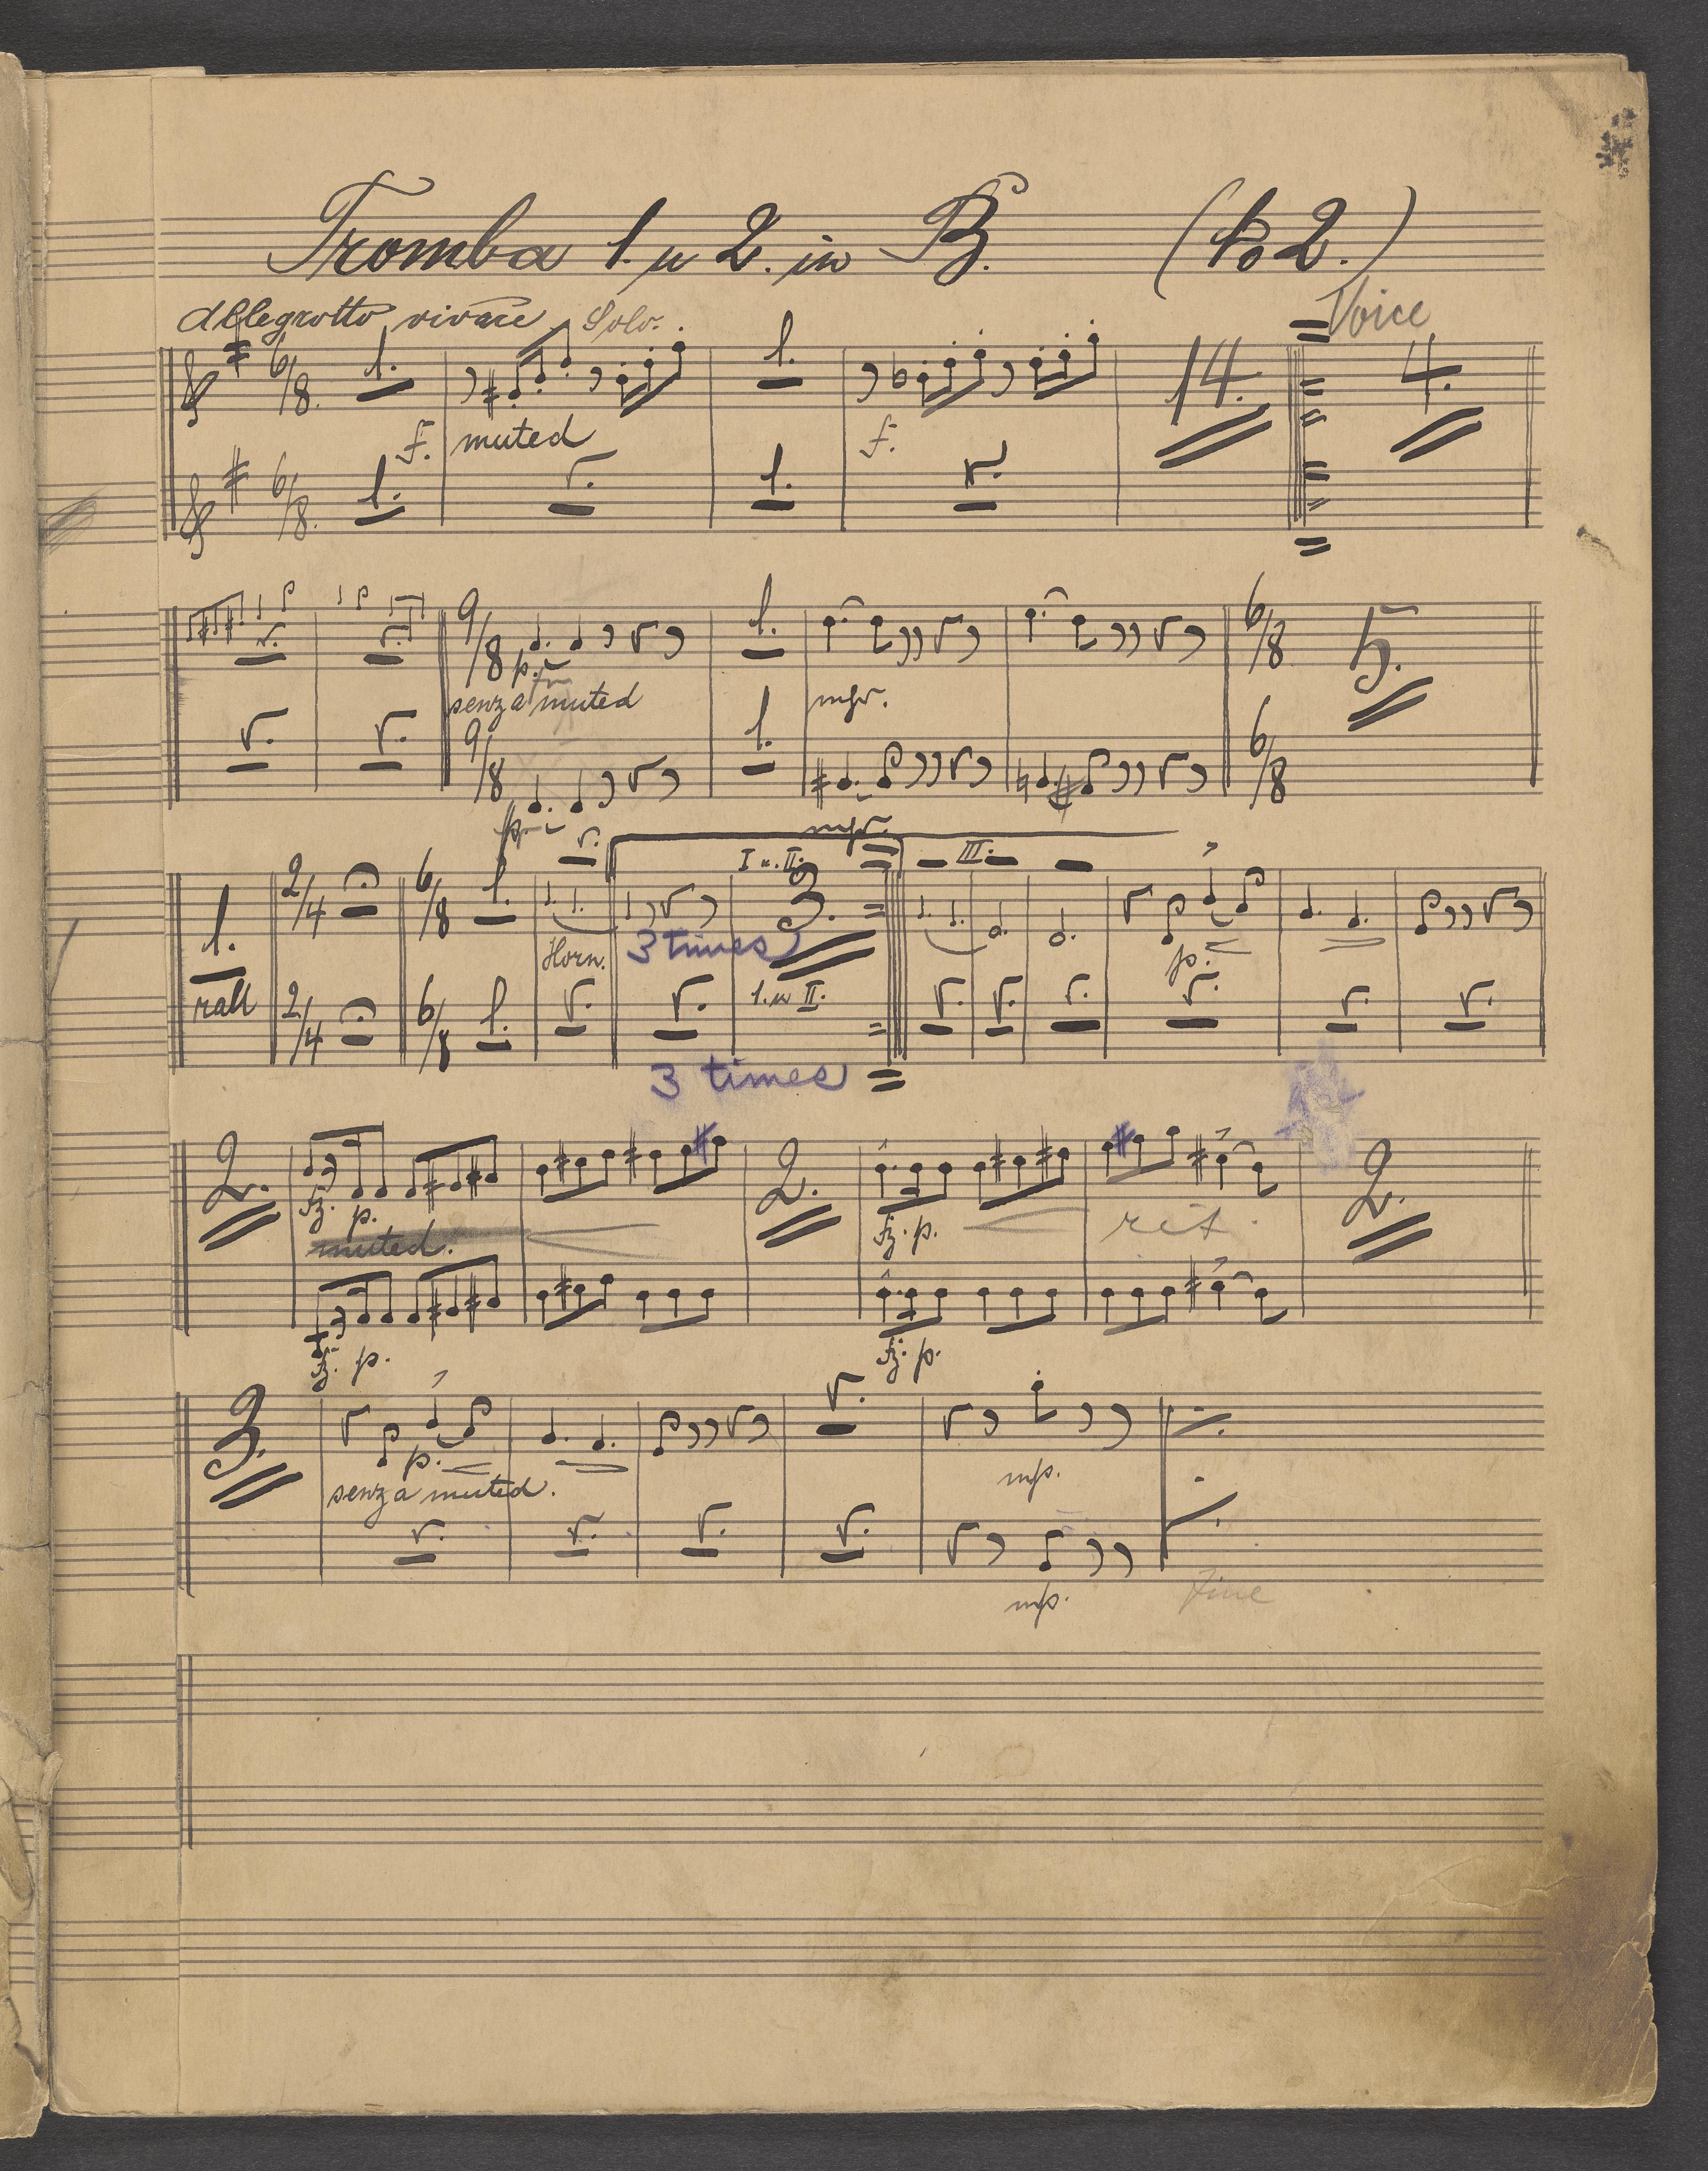 Tromba 1. u 2. in B. (No 2.)
Allegretto vivace Solo.
Voice
6/8. 1. 1. 14. 4.
f. muted f.
6/8. 1. 1.
9/8 1. 6/8 5.
p.
senza muted mfo.
9/8 1. 6/8
p. mfo.
I u. II. III.
1. 2/4 6/8 1. 3.
Horn. 3 times p.
rall 2/4 6/8 1. 1. u II.
3 times
2. 2. 2.
fz. p. fz. p. rit.
muted.
fz. p. fz. p.
3.
p. mp.
senza muted.
mp. Fine